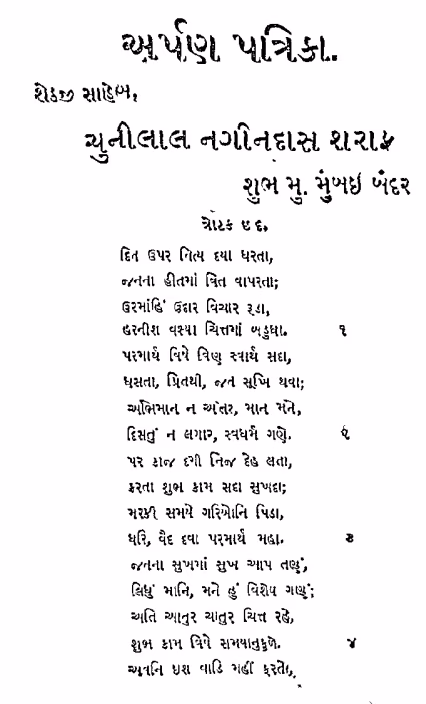 અર્પણ પત્રિકા.
શેઠજી સાહેબ,
ચુનીલાલ નગીનદાસ શરાફ
શુભ મુ. મુંબઇ બંદર
ત્રોટક છંદ.
દિન ઉપર નિત્ય દયા ધરતા,
જનના હીતમાં વિત વાપરતા;
ઉરમાંહિ ઉદાર વિચાર રૂડા,
હરનીશ વસ્યા ચિત્તમાં બહુધા. ૧
પરમાર્થ વિષે વિણ સ્વાર્થ સદા,
ધસતા, પ્રિતથી, જન સૂખિ થવા;
અભિમાન ન અંતર, માન મને,
દિસતું ન લગાર, સ્વધર્મ ગણે. ૨
પર કાજ દમી નિજ દેહ છતા,
કરતા શુભ કામ સદા સુખદા;
મરકી સમયે ગરિબોનિ પિડા,
ધરિ, વૈદ દવા પરમાર્થ મહા. ૩
જનના સુખમાં સુખ આપ તણું,
લિધું માનિ, મને હું વિશેષ ગણું;
અતિ આતુર ચાતુર ચિત્ત રહે,
શુભ કામ વિષે સમયાનુકુળે. ૪
અવનિ ઇશ વાડિ મહીં ફરતાં,